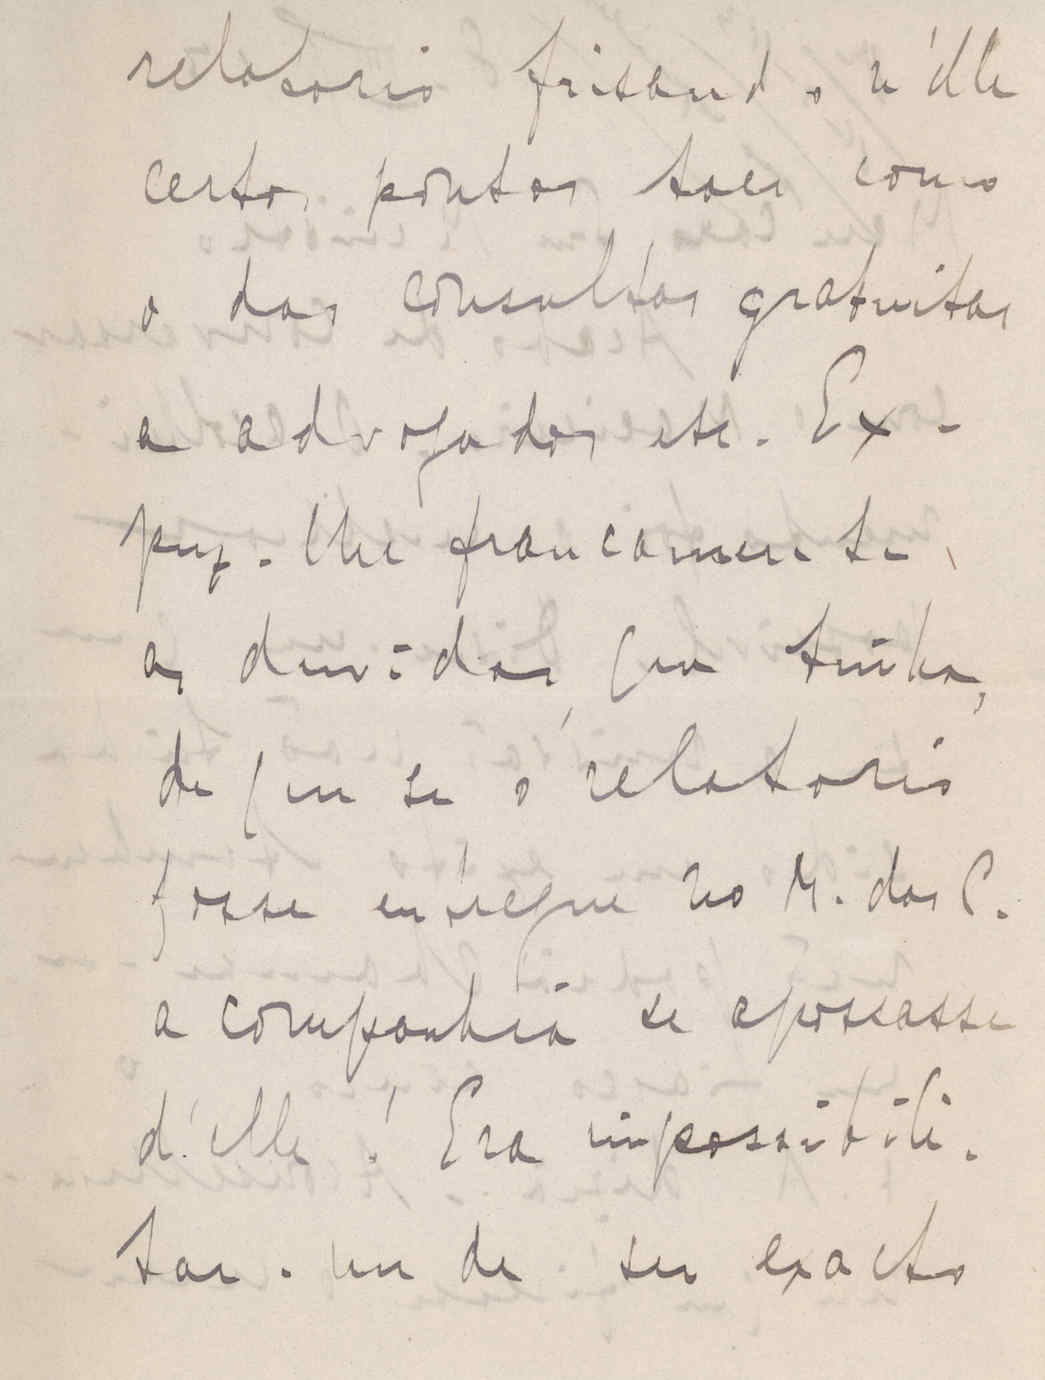 relatorio frisando n'elle
certos pontos taes como
o das consultas gratuitas
a advogados etc. Ex-
puz-lhe francamente
as duvidas, que tinha,
de que se o relatorio
fosse entregue no M. das C.
a companhia se apossasse
d'elle! Era impossibili-
tar-me de ser exacto